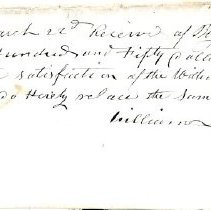 arch 21st Received of
Hundred and Fifty Dolla
satisfaction of the Within
do Hereby release the Same
William